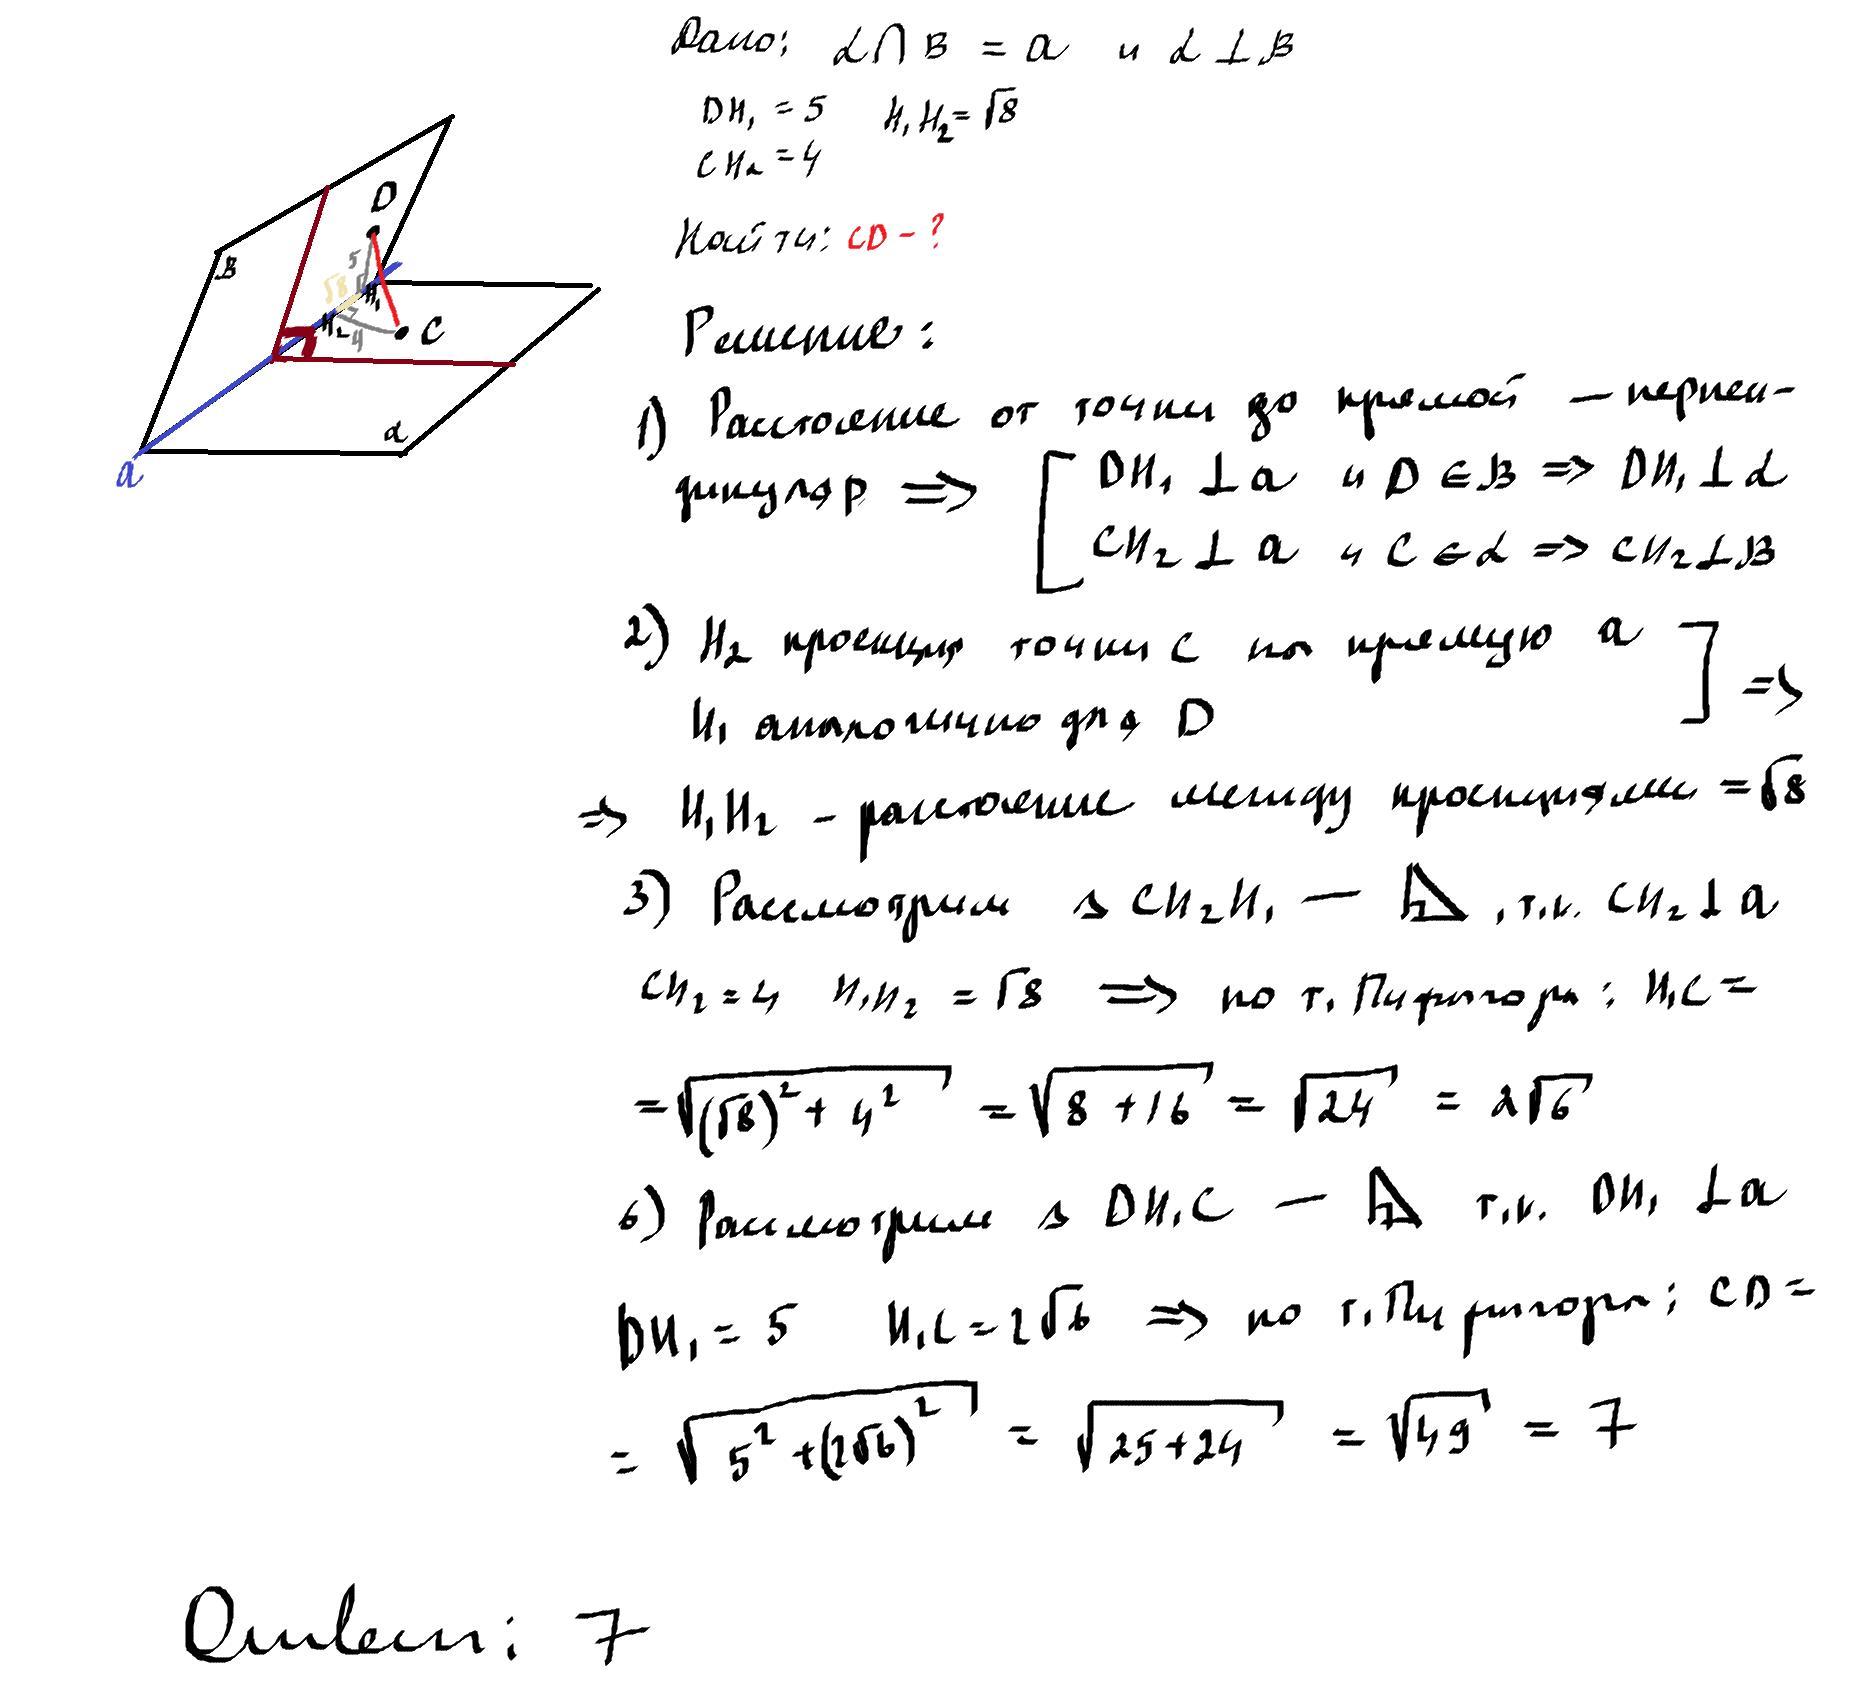 Дано: α ∩ β = a и α ⊥ β
DH₁ = 5 H₁H₂ = √8
CH₂ = 4
Найти: CD - ?
D
β
5
√8
H₁
H₂
4
C
α
a
Решение:
1) Расстояние от точки до прямой – перпен-
дикуляр => [ DH₁ ⊥ a и D ∈ β => DH₁ ⊥ α
CH₂ ⊥ a и C ∈ α => CH₂ ⊥ β
2) H₂ проекция точки C на прямую a
H₁ аналогично для D ] =>
=> H₁H₂ - расстояние между проекциями = √8
3) Рассмотрим △ CH₂H₁ — ◺, т.к. CH₂ ⊥ a
CH₂ = 4 H₁H₂ = √8 => по т. Пифагора: H₁C =
= √((√8)² + 4²) = √(8 + 16) = √24 = 2√6
6) Рассмотрим △ DH₁C — ◺ т.к. DH₁ ⊥ a
DH₁ = 5 H₁C = 2√6 => по т. Пифагора: CD =
= √(5² + (2√6)²) = √(25 + 24) = √49 = 7
Ответ: 7